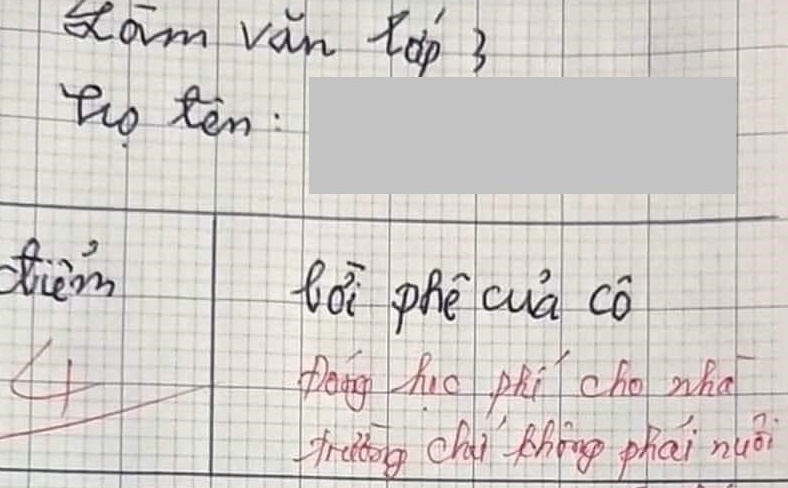 Làm văn lớp 3
Họ tên:
điểm
lời phê của cô
4
Đóng học phí cho nhà
trường chứ không phải nuôi